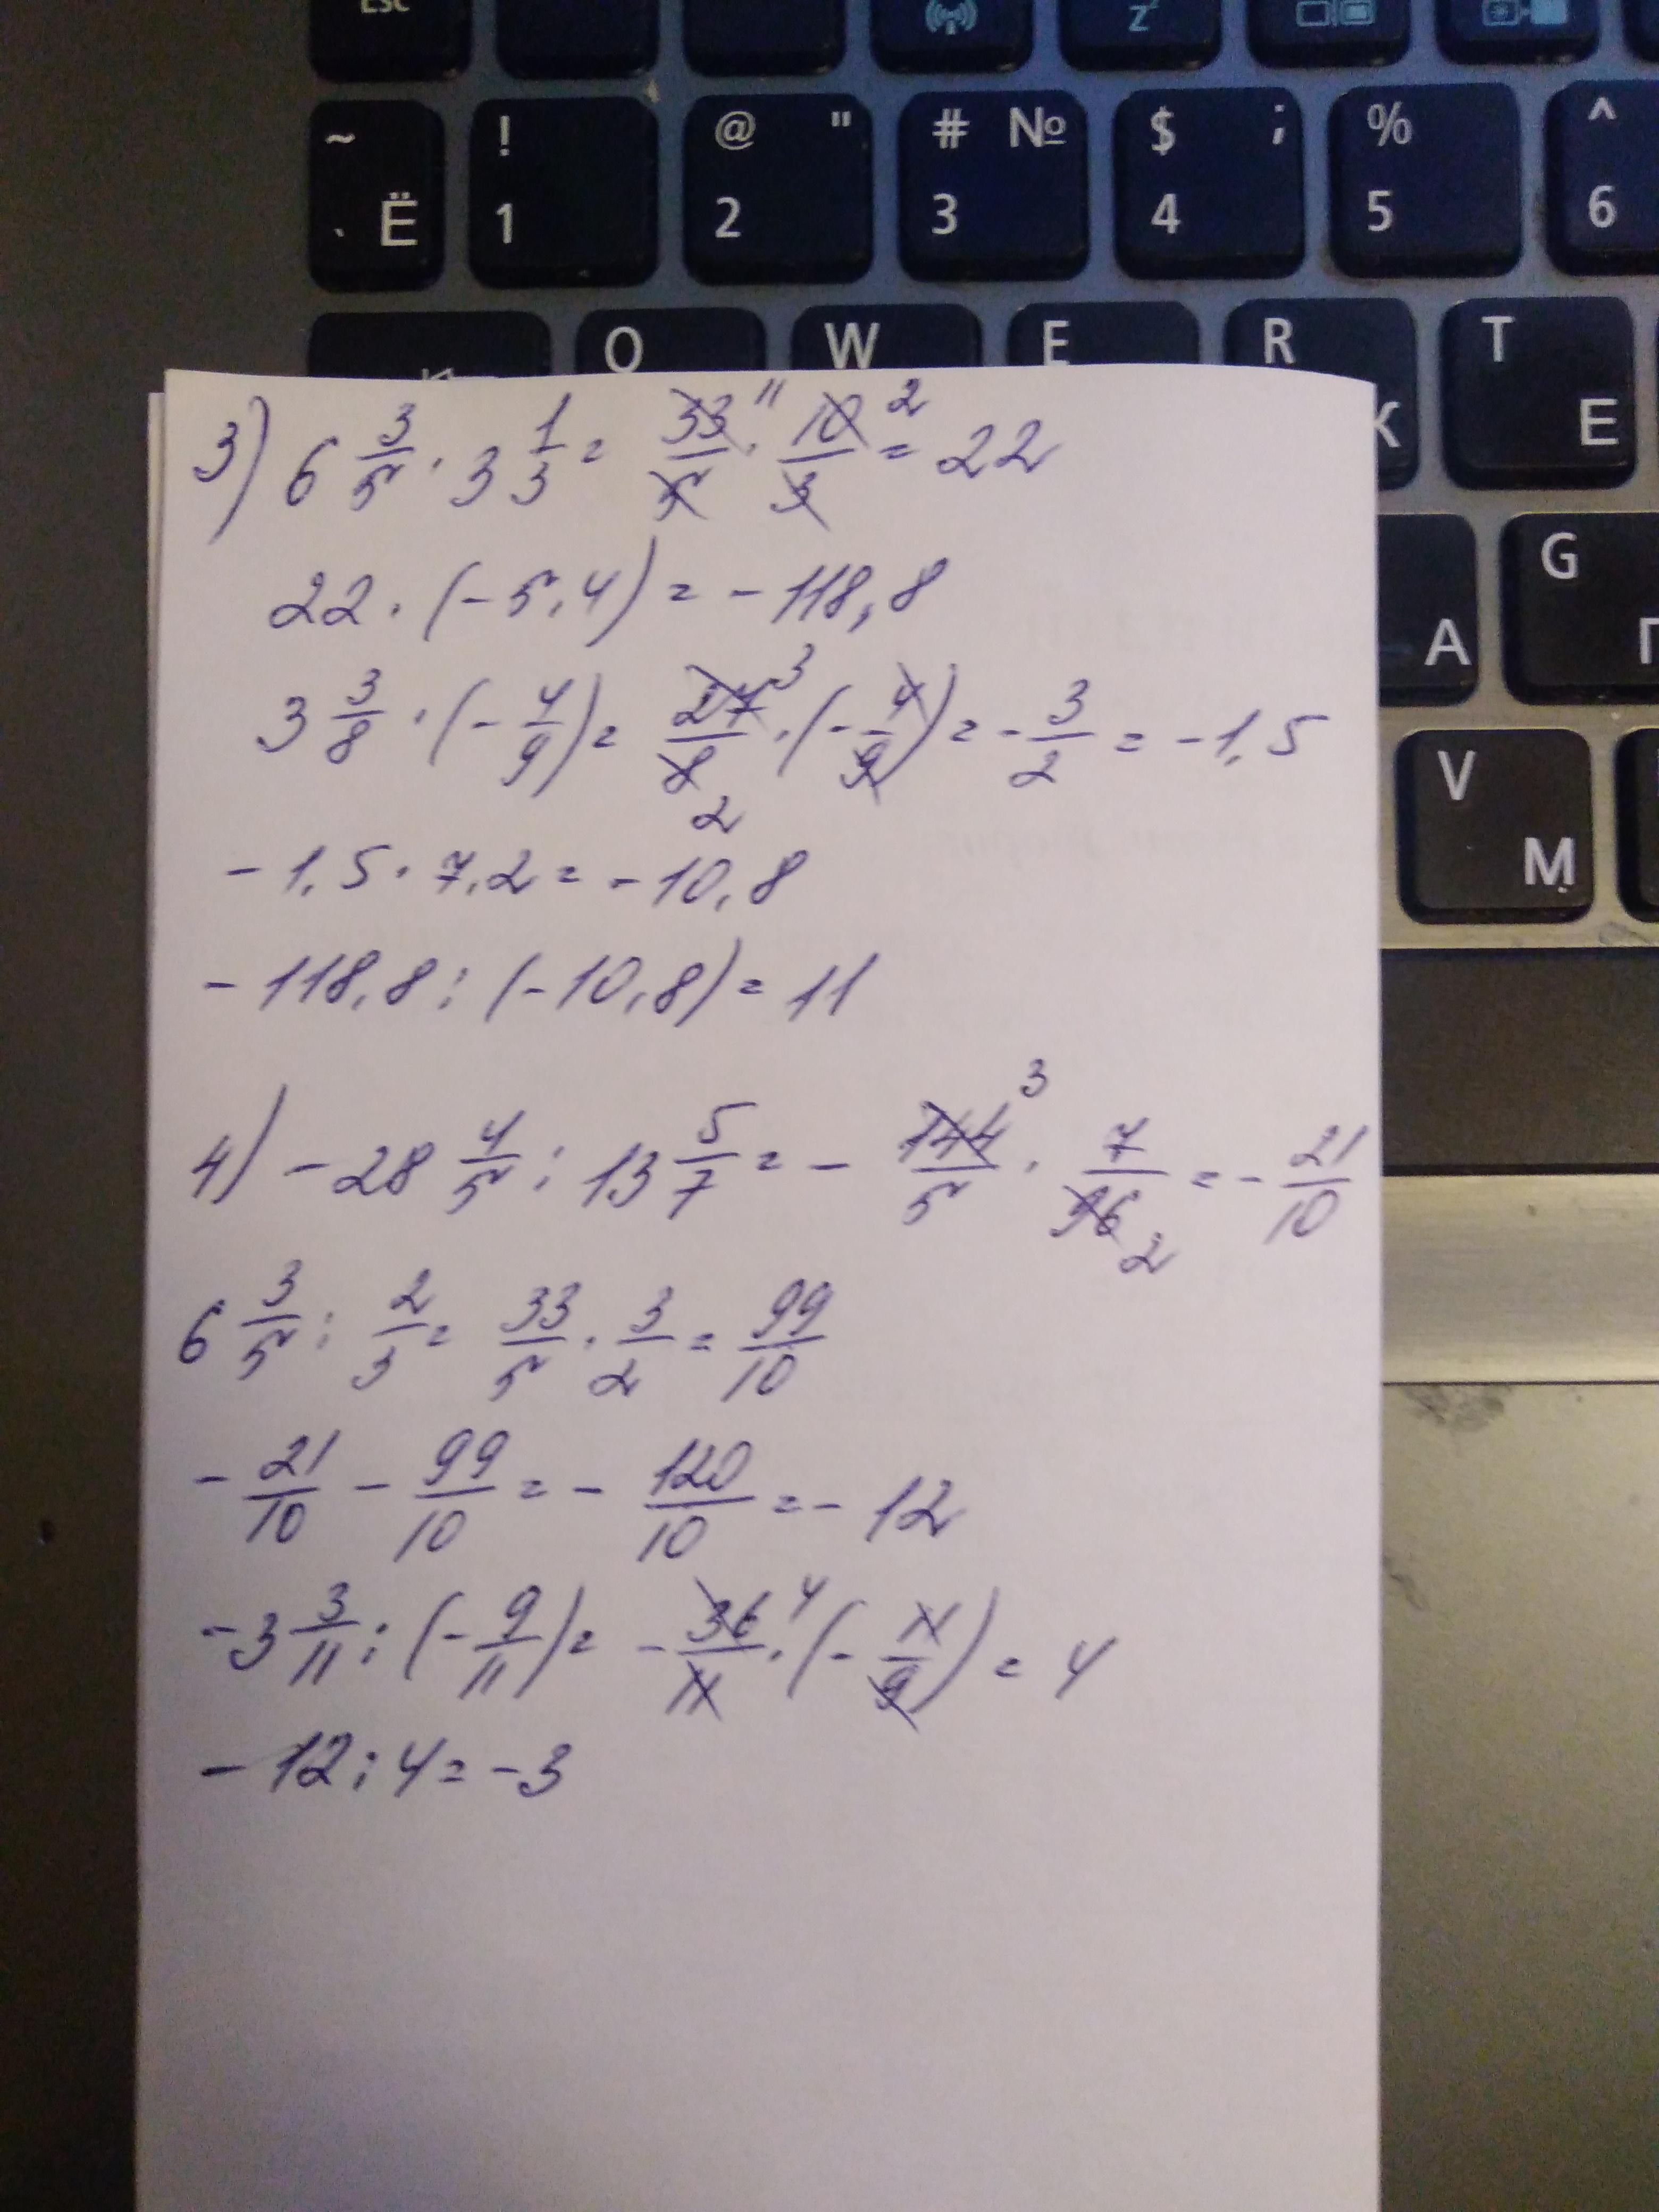 Esc
z
~ ! @ " # № $ ; % ^
` Ё 1 2 3 4 5 6
Q W E R T
К Е
G
А П
V
М
3) 6 3/5 · 3 1/3 = 33/5 · 10/3 = 22
11 2
22 · (-5,4) = -118,8
3 3/8 · (-4/9) = 27/8 · (-4/9) = -3/2 = -1,5
3 2
-1,5 · 7,2 = -10,8
-118,8 : (-10,8) = 11
4) -28 4/5 : 13 5/7 = - 144/5 · 7/96 = - 21/10
3 2
6 3/5 : 2/3 = 33/5 · 3/2 = 99/10
- 21/10 - 99/10 = - 120/10 = - 12
-3 3/11 : (- 9/11) = - 36/11 · (- 11/9) = 4
4
- 12 : 4 = -3